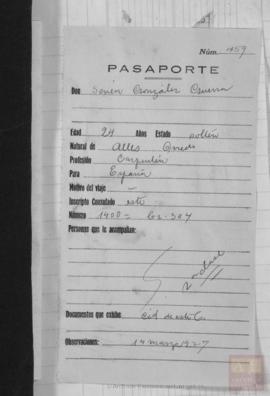 Núm. 459
PASAPORTE
Don Senén González
Edad 24 Años Estado soltero
Natural de Alles Oviedo
Profesión Carpintero
Para España
Motivo del viaje —
Inscripto Consulado este
Número 1400 =
Personas que le acompañan:
Documentos que exhibe
Observaciones: 14 marzo 1927